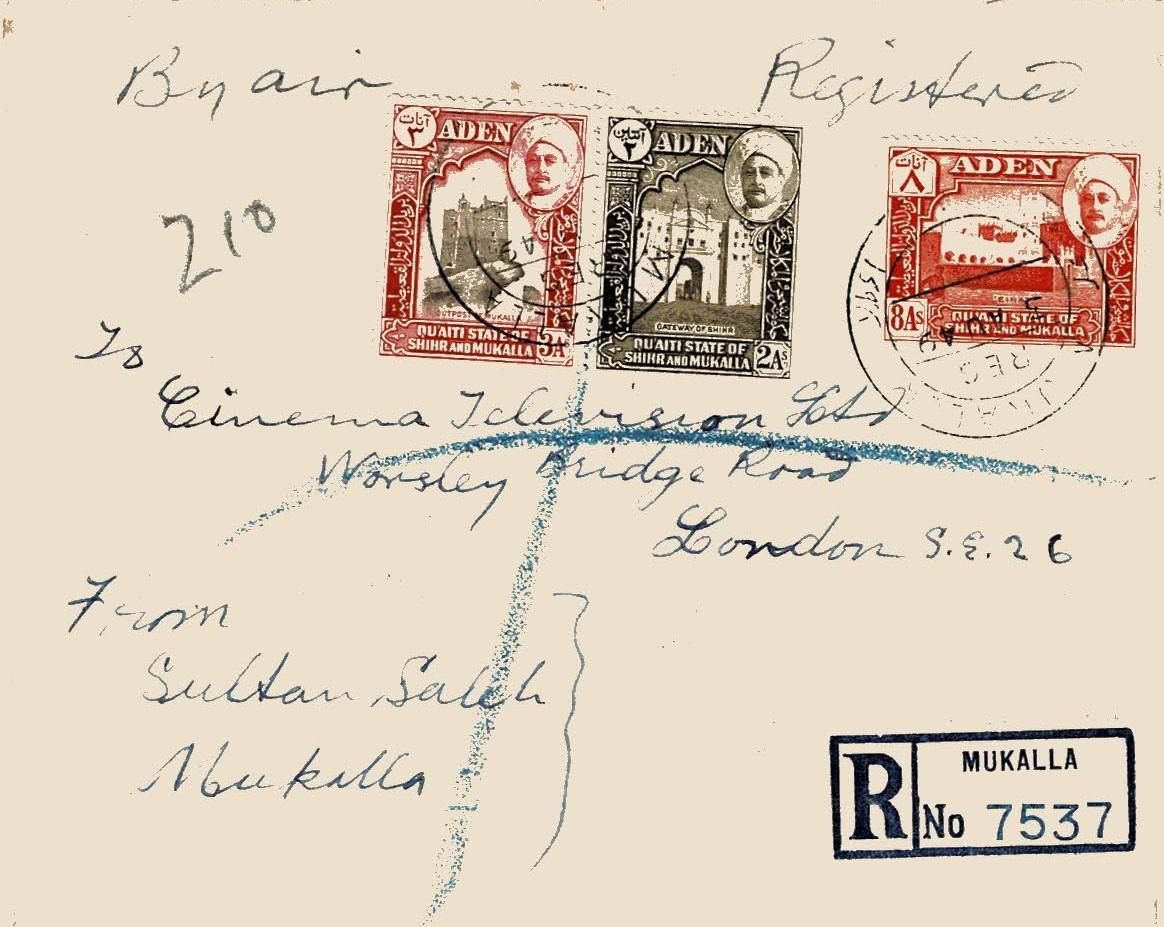 By air
Registered
آنات
٣
ADEN
OUTPOST MUKALLA
QU'AITI STATE OF
SHIHR AND MUKALLA
3As
آنتين
٢
ADEN
GATEWAY OF SHIHR
QU'AITI STATE OF
SHIHR AND MUKALLA
2As
آنات
٨
ADEN
8As
QU'AITI STATE OF
SHIHR AND MUKALLA
MUKALLA
REG
AU 49
210
To
Cinema Television Ltd
Worsley Bridge Road
London S.E. 26
From
Sultan Saleh
Mukalla
R
MUKALLA
No 7537